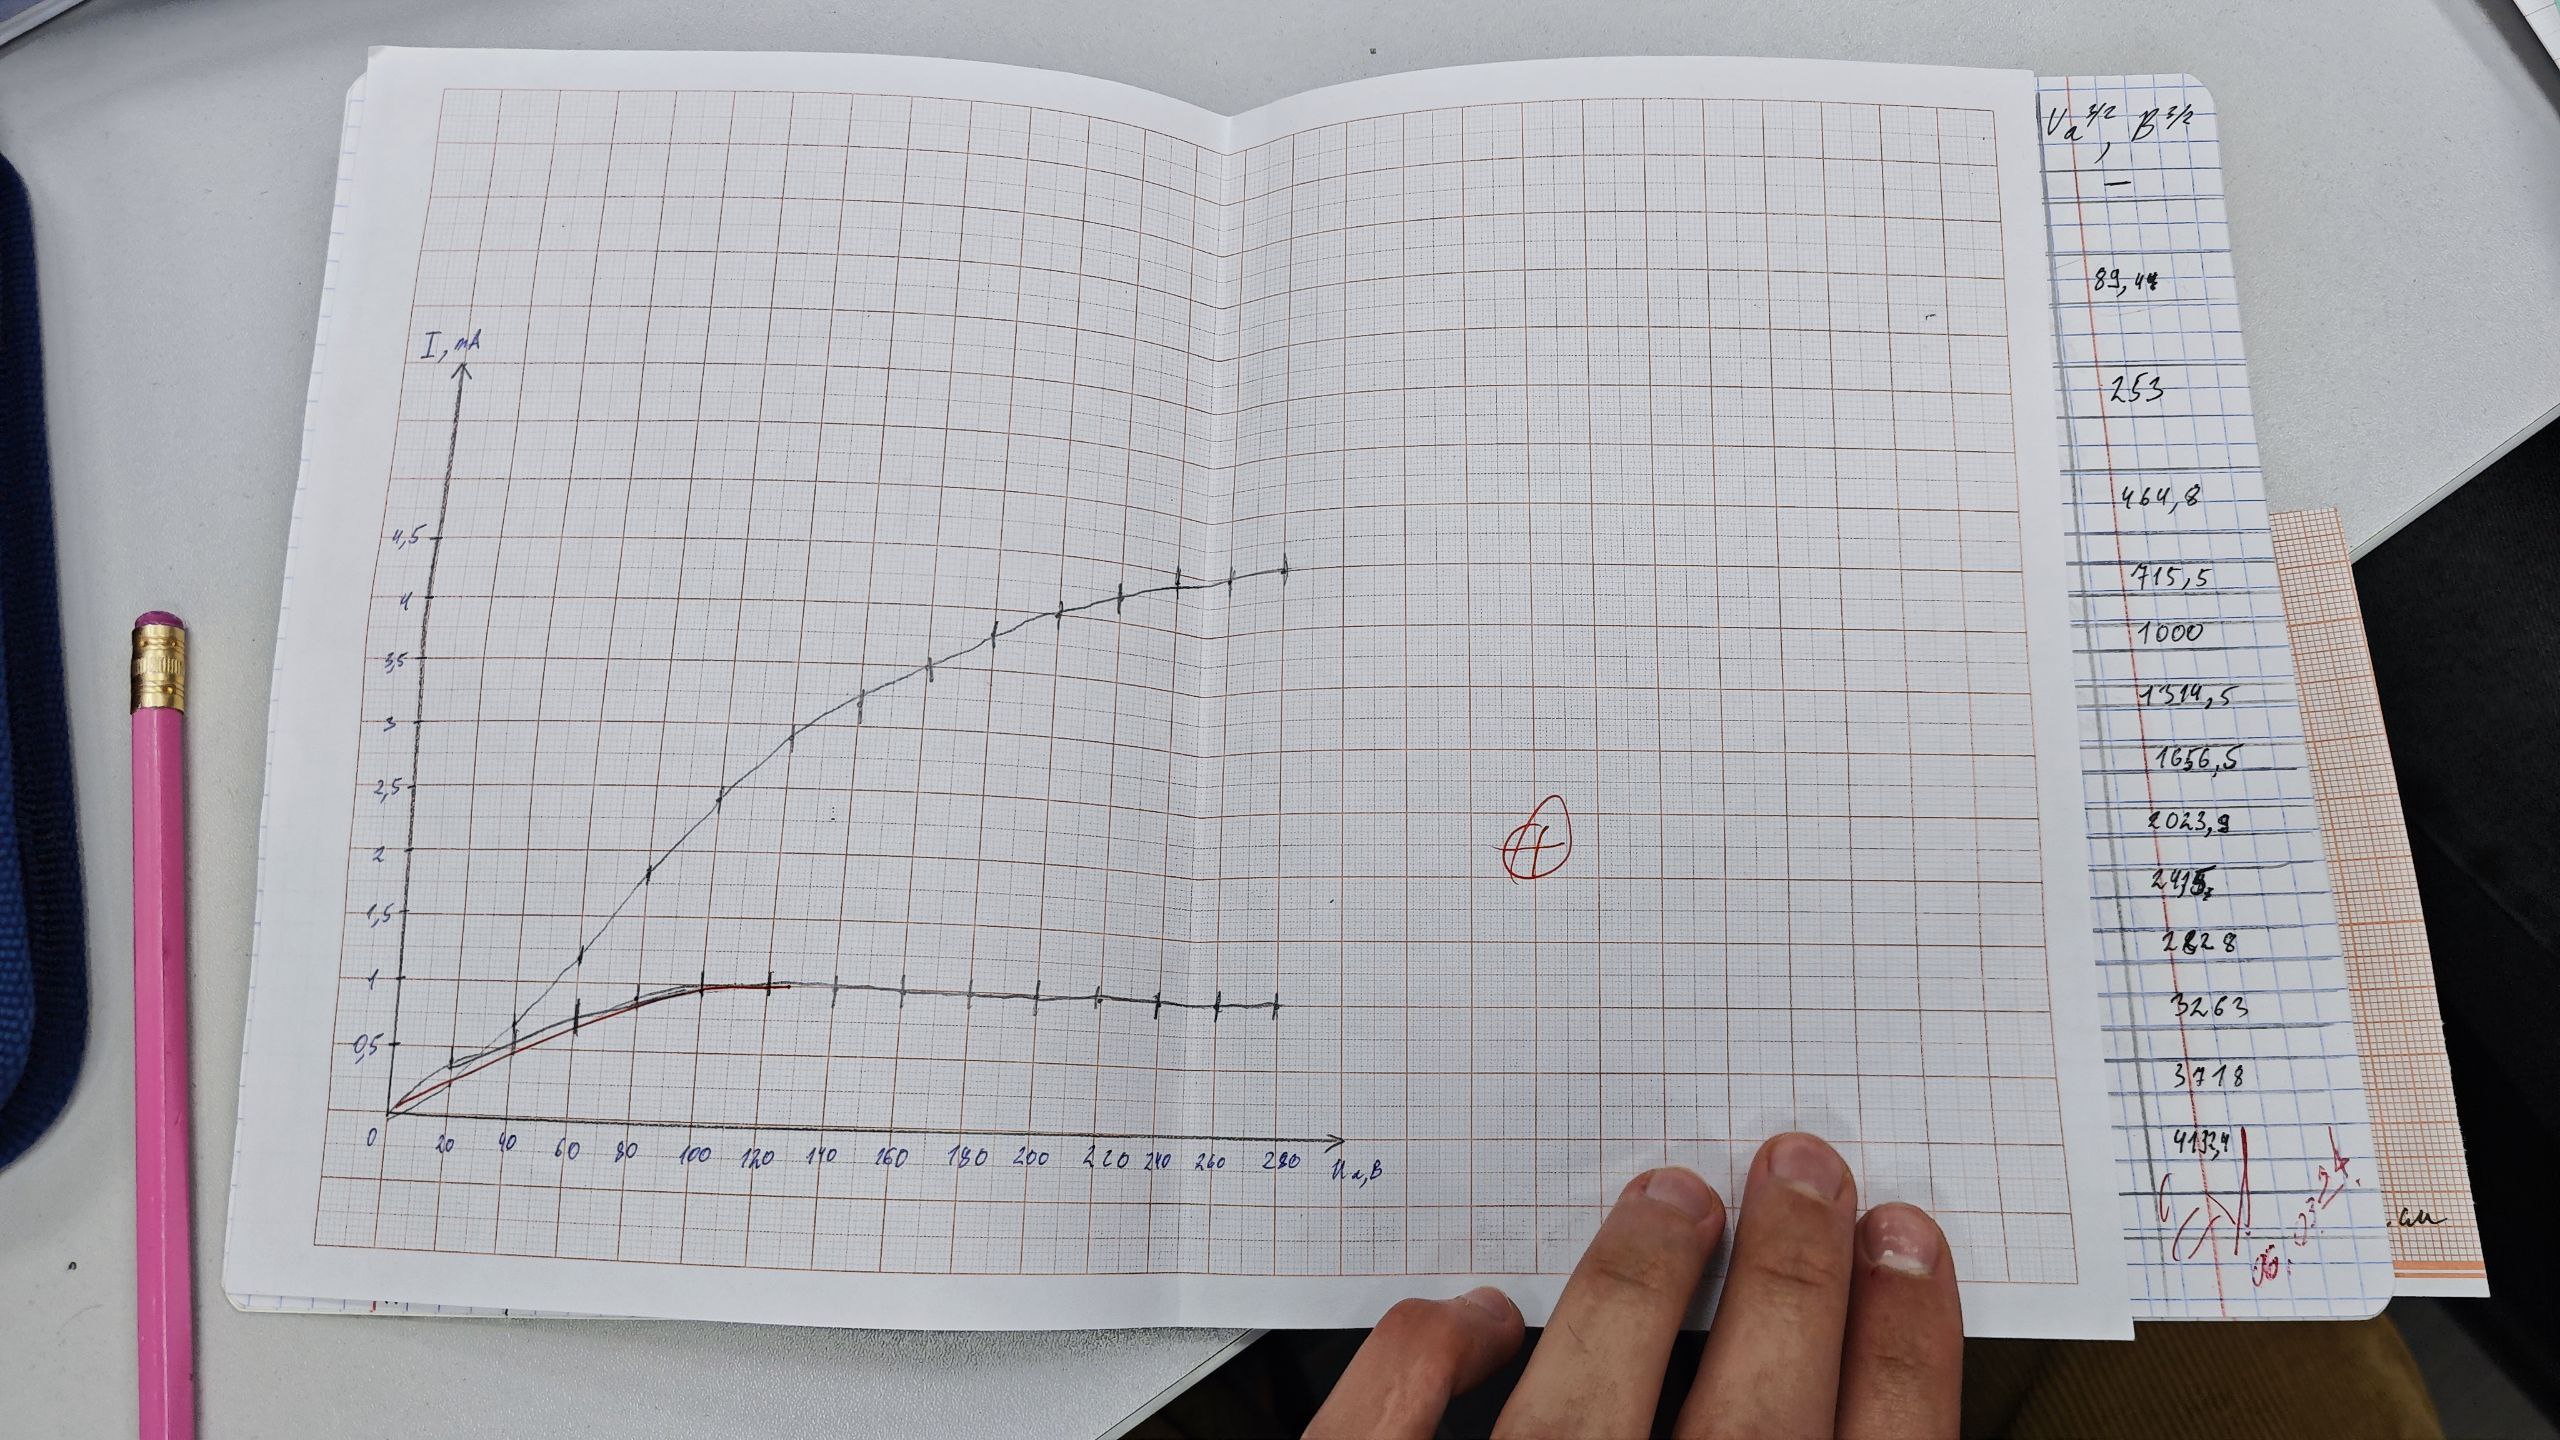 I, mA
4,5
4
3,5
3
2,5
2
1,5
1
0,5
0 20 40 60 80 100 120 140 160 180 200 220 240 260 280 Uа,В
Ua^3/2, B^3/2
—
89,44
253
464,8
715,5
1000
1314,5
1656,5
2023,9
2415
2828
3263
3718
06.03.24.